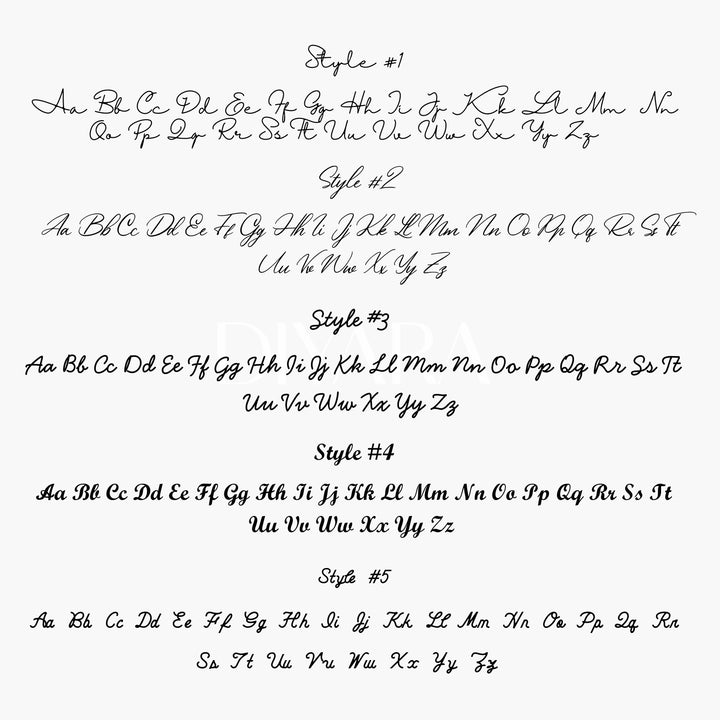 Style #1
Aa Bb Cc Dd Ee Ff Gg Hh Ii Jj Kk Ll Mm Nn
Oo Pp Qq Rr Ss Tt Uu Vv Ww Xx Yy Zz
Style #2
Aa Bb Cc Dd Ee Ff Gg Hh Ii Jj Kk Ll Mm Nn Oo Pp Qq Rr Ss Tt
Uu Vv Ww Xx Yy Zz
Style #3
DIYARA
Aa Bb Cc Dd Ee Ff Gg Hh Ii Jj Kk Ll Mm Nn Oo Pp Qq Rr Ss Tt
Uu Vv Ww Xx Yy Zz
Style #4
Aa Bb Cc Dd Ee Ff Gg Hh Ii Jj Kk Ll Mm Nn Oo Pp Qq Rr Ss Tt
Uu Vv Ww Xx Yy Zz
Style #5
Aa Bb Cc Dd Ee Ff Gg Hh Ii Jj Kk Ll Mm Nn Oo Pp Qq Rr
Ss Tt Uu Vv Ww Xx Yy Zz